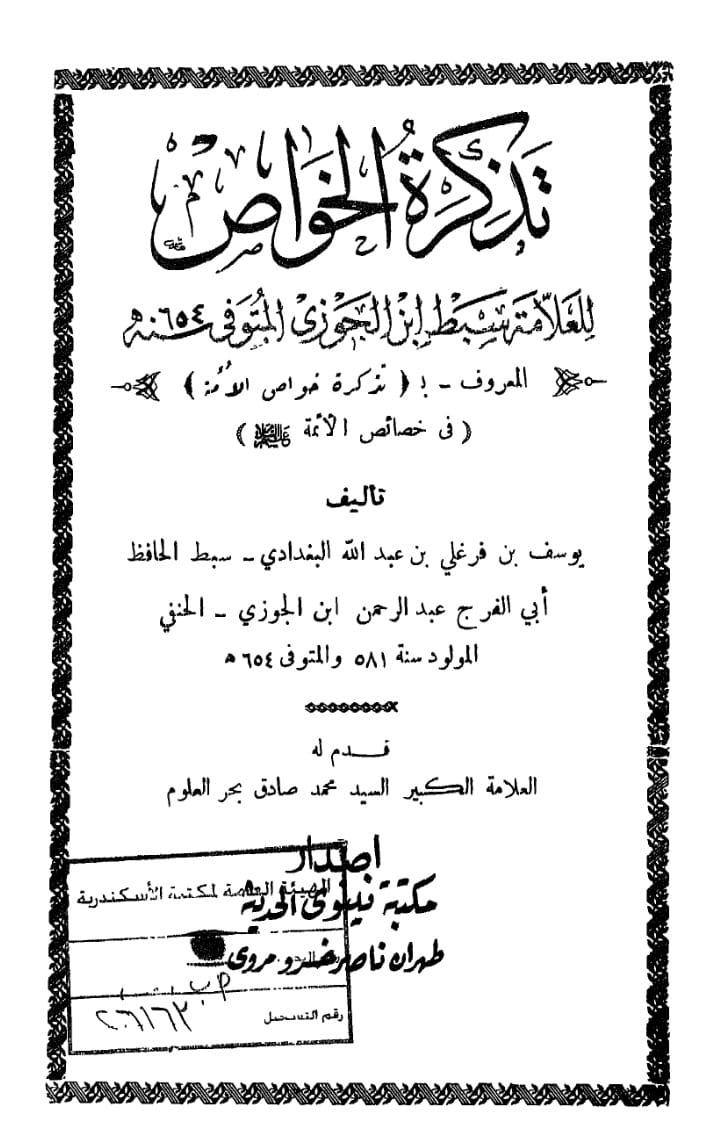 تذكرة الخواص
للعلامة سبط ابن الجوزي المتوفى سنة ٦٥٤ هـ
المعروف - بـ ( تذكرة خواص الأئمة )
( في خصائص الأئمة عليهم السلام )
تأليف
يوسف بن فرغلي بن عبد الله البغدادي - سبط الحافظ
أبي الفرج عبد الرحمن ابن الجوزي - الحنفي
المولود سنة ٥٨١ والمتوفى ٦٥٤ هـ
قدم له
العلامة الكبير السيد محمد صادق بحر العلوم
إصدار
مكتبة نينوى الحديثة
طهران ناصر خسرو مروى
الهيئة العامة لمكتبة الأسكندرية
رقم التسجيل ٢٠٦١٦٢